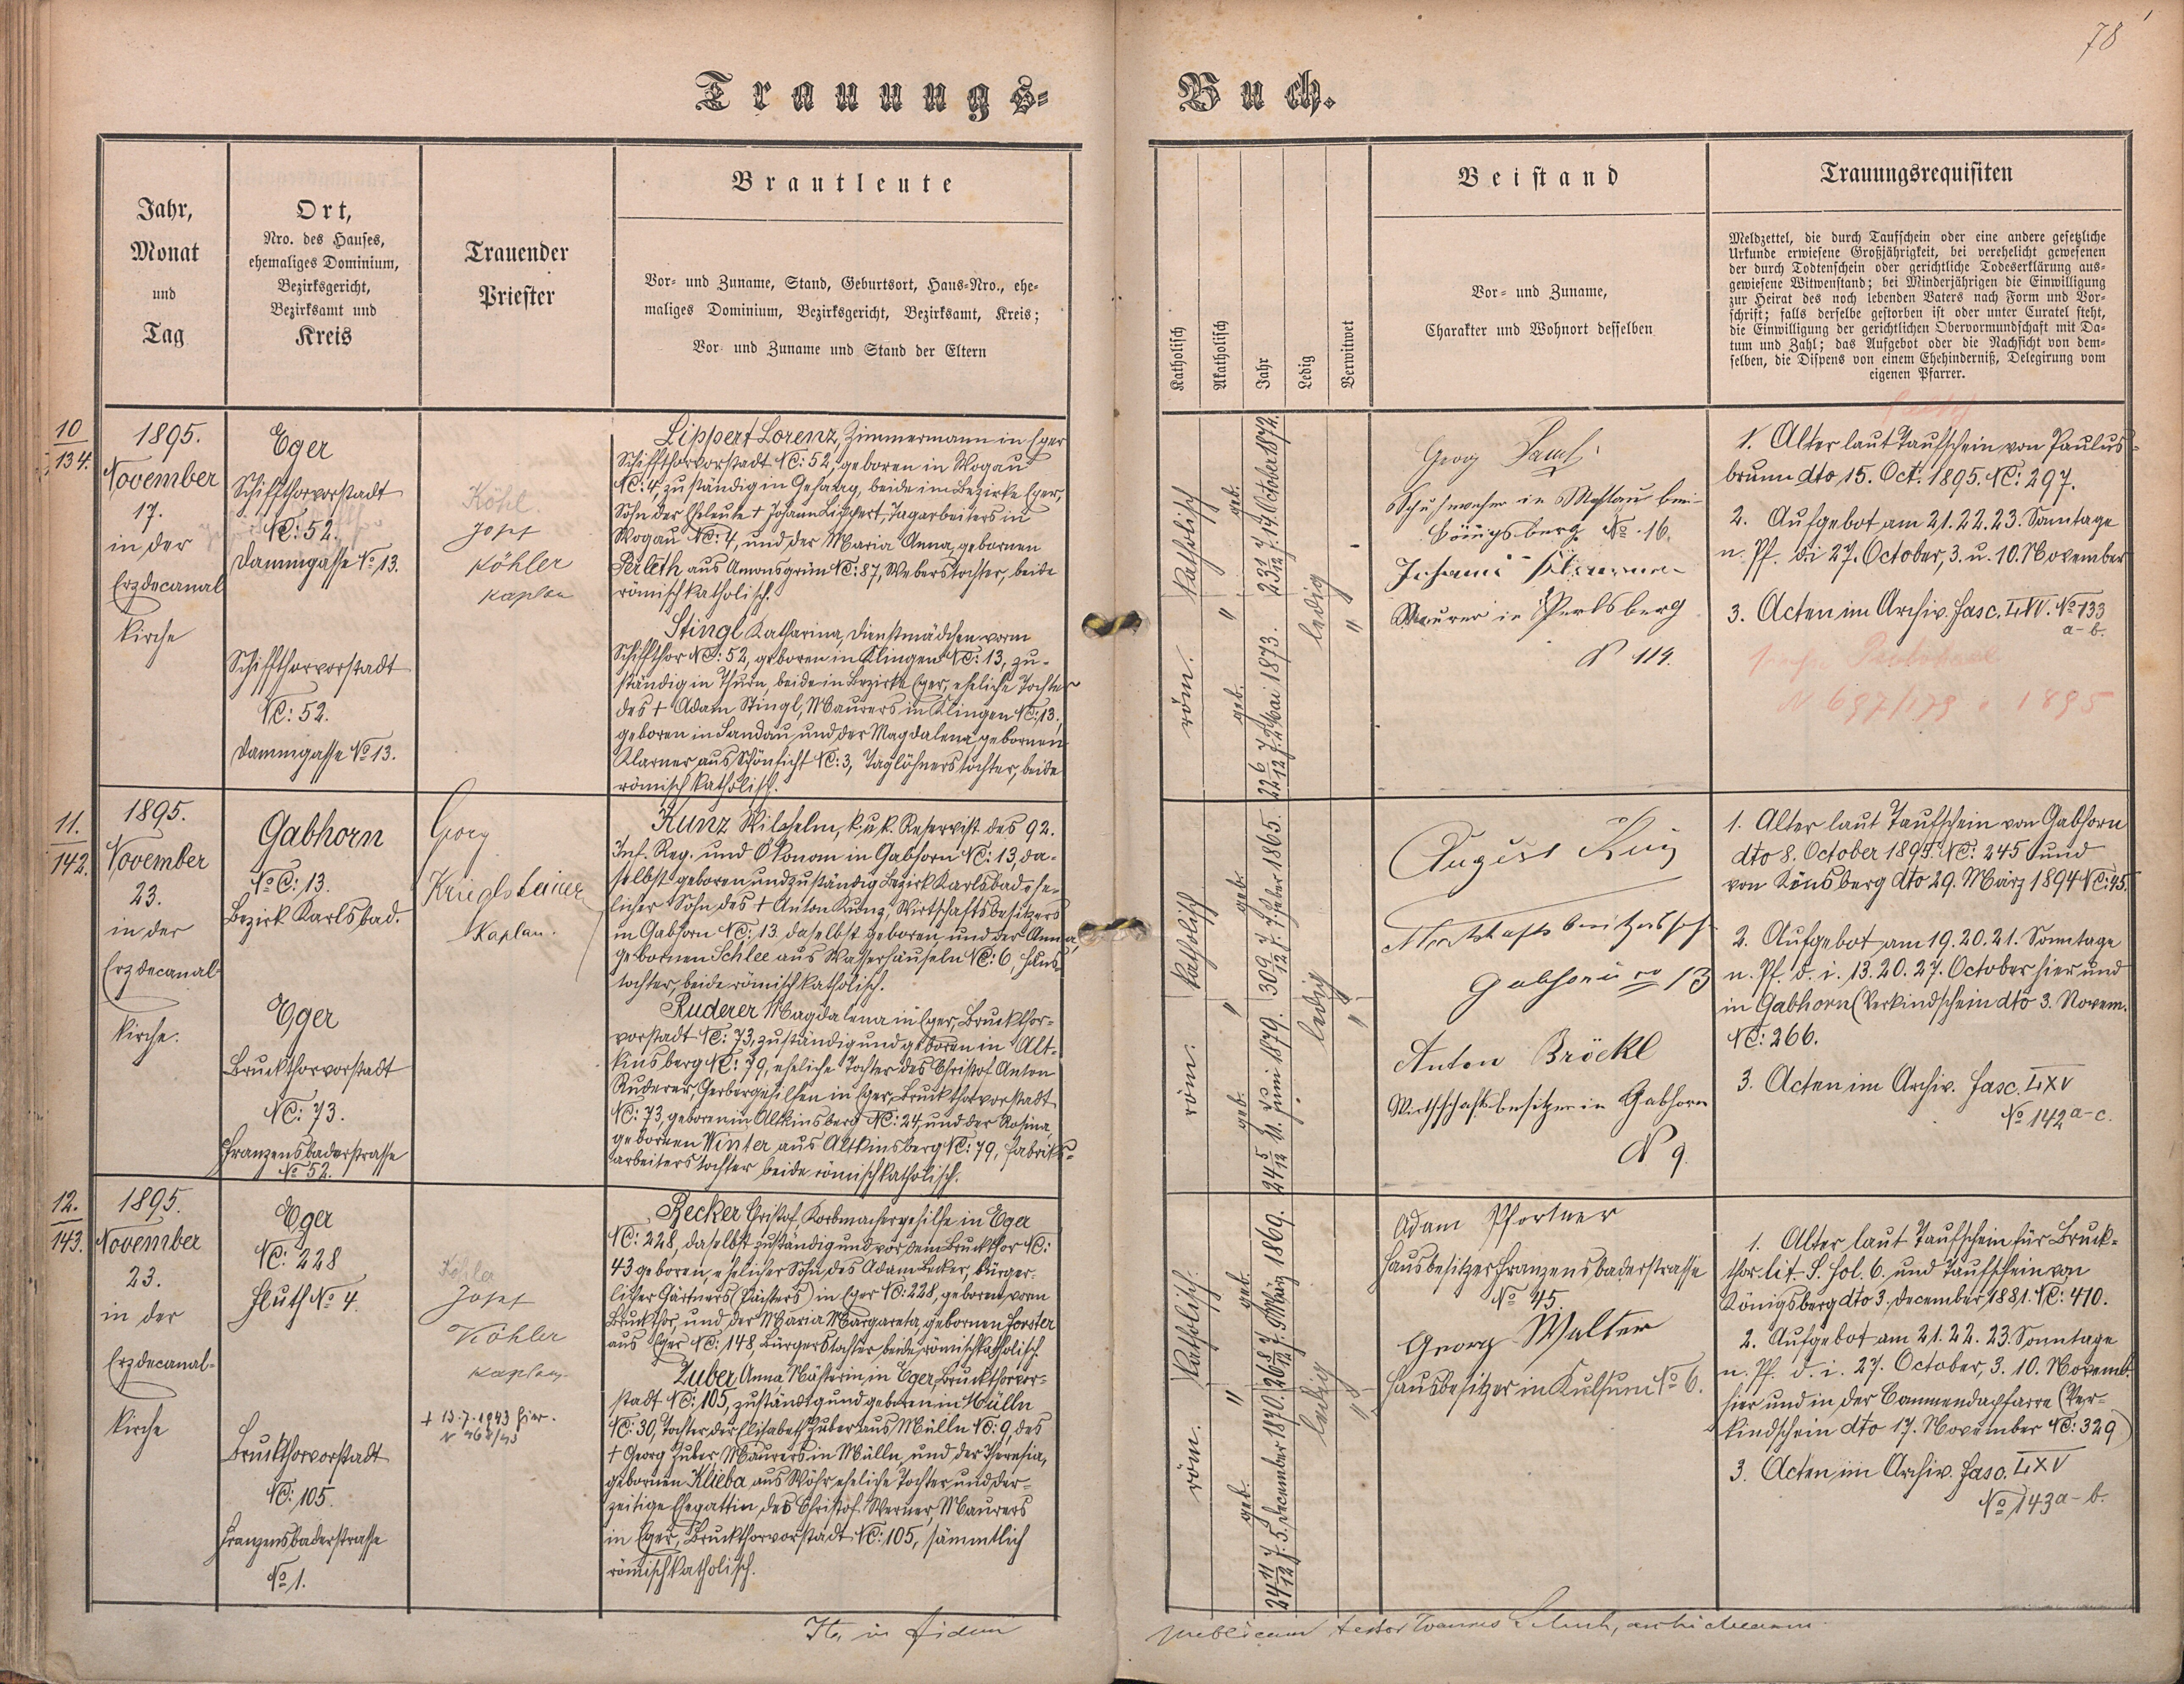 78
Trauungs-
Buch.
Jahr,
Monat
und
Tag
Ort,
Nro. des Hauses,
ehemaliges Dominium,
Bezirksgericht,
Bezirksamt und
Kreis
Trauender
Priester
Brautleute
Vor- und Zuname, Stand, Geburtsort, Haus-Nro., ehe-
maliges Dominium, Bezirksgericht, Bezirksamt, Kreis;
Vor- und Zuname und Stand der Eltern
Katholisch
Akatholisch
Jahr
Ledig
Verwitwet
Beistand
Vor- und Zuname,
Charakter und Wohnort desselben
Trauungsrequisiten
Meldzettel, die durch Taufschein oder eine andere gesetzliche
Urkunde erwiesene Großjährigkeit, bei verehelicht gewesenen
der durch Todtenschein oder gerichtliche Todeserklärung aus-
gewiesene Witwenstand; bei Minderjährigen die Einwilligung
zur Heirat des noch lebenden Vaters nach Form und Vor-
schrift; falls derselbe gestorben ist oder unter Curatel steht,
die Einwilligung der gerichtlichen Obervormundschaft mit Da-
tum und Zahl; das Aufgebot oder die Nachsicht von dem-
selben, die Dispens von einem Ehehinderniß, Delegirung vom
eigenen Pfarrer.
10
134.
1895.
November
17.
in der
Erzdecanal
kirche
Eger
Schiffthorvorstadt
NC: 52.
Dammgasse No 13.
Schiffthorvorstadt
NC: 52.
Dammgasse No 13.
Köhl.
Josef
Köhler
Kaplan
Lippert Lorenz, Zimmermann in Eger
Schiffthorvorstadt NC: 52, geboren in Wogau
NC: 4, zuständig in Gehaag, beide im Bezirke Eger,
Sohn der Eheleute + Johann Lippert, Tagarbeiters in
Wogau NC: 4, und der Maria Anna, gebornen
Perleth aus Amonsgrün NC: 87, Weberstochter, beide
römisch katholisch.
Stingl Katharina, Dienstmädchen vorm
Schiffthor NC: 52, geboren in Klingen NC: 13, zu-
ständig in Thurn, beide in Bezirke Eger, eheliche Tochter
des + Adam Stingl, Maurers in Klingen NC: 13,
geboren in Sandau, und der Magdalena, gebornen
Klarner aus Schönficht NC: 3, Taglöhnerstochter, beide
römisch katholisch.
röm. katholisch
"
23 1/12 J. geb. 14. October 1872.
22 6/12 J. geb. 2. Mai 1873.
ledig
"
Georg
Schuhmacher in
Königsberg No 16.
Johann
Maurer in Perlsberg
N 114.
1. Alter laut Taufschein von Paulus-
brunn dto 15. Oct. 1895. NC: 297.
2. Aufgebot am 21. 22. 23. Sonntage
n. Pf. di 27. October, 3. u. 10. November
3. Acten im Archiv. Fasc. LXV. No 133
a-b.
N 697/179 1895
11.
142.
1895.
November
23.
in der
Erzdecanal-
kirche.
Gabhorn
No C: 13.
Bezirk Karlsbad.
Eger
Bruckthorvorstadt
NC: 73.
Franzensbaderstrasse
No 52.
Georg
Krieglsteiner
Kaplan.
Kunz Wilhelm, k. u. k. Reservist des 92.
Inf. Reg. und Ökonom in Gabhorn NC: 13, da-
selbst geboren und zuständig Bezirk Karlsbad, ehe-
licher Sohn des + Anton Kunz, Wirtschaftsbesitzers
in Gabhorn NC: 13 daselbst geboren, und der Anna,
gebornen Schlee aus Wasserhäuseln NC: 6 Haus-
tochter, beide römisch katholisch.
Ruderer Magdalena in Eger, Bruckthor-
vorstadt NC: 73, zuständig und geboren in Alt-
kinsberg NC: 79, eheliche Tochter des Christof Anton
Ruderer, Gerbergehilfen in Eger, Bruckthorvorstadt
NC: 73, geboren in Altkinsberg NC: 24, und der Rosina,
gebornen Winter aus Altkinsberg NC: 79, Fabriks-
arbeiterstochter beide römisch katholisch.
röm. katholisch
"
30 9/12 J. geb. 7. Feber 1865.
24 5/12 J. geb. 11. Juni 1879.
ledig
"
August Kunz
Wirtschaftsbesitzerssohn
Gabhorn No 13
Anton Bröckl
Wirthschaftsbesitzer in Gabhorn
N 9.
1. Alter laut Taufschein von Gabhorn
dto 8. October 1895. NC: 245 und
von Kinsberg dto 29. März 1894 NC: 45.
2. Aufgebot am 19. 20. 21. Sonntage
n. Pf. d. i. 13. 20. 27. October hier und
in Gabhorn (Verkindschein dto 3. Novem.
NC: 266.
3. Acten im Archiv. Fasc. LXV
No 142 a-c.
12.
143.
1895.
November
23.
in der
Erzdecanal-
kirche
Eger
NC: 228
Fluth No 4.
Bruckthorvorstadt
NC: 105.
Franzensbaderstrasse
No 1.
Köhler
Josef
Köhler
Kaplan
+ 13.7.1943 hier.
Becker Christof, Korbmachergehilfe in Eger
NC: 228, daselbst zuständig und vor dem Bruckthor NC:
43 geboren, ehelicher Sohn des Adam Becker, bürger-
licher Gärtners (Pächters) in Eger NC: 228, geboren vorm
Bruckthor, und der Maria Margareta, gebornen Forster
aus Eger NC: 148, Bürgerstochter beide römisch katholisch.
Zuber Anna Näherin, in Eger, Bruckthorvor-
stadt NC: 105, zuständig und geboren in Mülln
NC: 30, Tochter der Elisabeth Zuber aus Mülln NC: 9, des
+ Georg Zuber, Maurers in Mülln, und der Theresia,
gebornen Klieba aus Wöhr, eheliche Tochter und der-
zeitige Ehegattin des Christof Werner, Maurers
in Eger, Bruckthorvorstadt NC: 105, sämmtlich
römisch katholisch.
röm. katholisch
"
26 8/12 J. geb. 5. März 1869.
24 11/12 J. geb. 5. December 1870.
ledig
"
Adam Pfortner
Hausbesitzer Franzensbaderstrasse
No 45.
Georg Walter
Hausbesitzer in Kulsum No 6.
1. Alter laut Taufschein für Bruck-
thor lit. S. fol. 6. und Taufschein von
Königsberg dto 3. December 1881. NC: 410.
2. Aufgebot am 21. 22. 23. Sonntage
n. Pf. d. i. 27. October, 3. 10. Novemb.
hier und in der Commendapfarre (Ver-
kindschein dto 17. November NC: 329)
3. Acten im Archiv. Fasc. LXV
No 143 a-b.
Ita in fidem
publicam testor Joannes